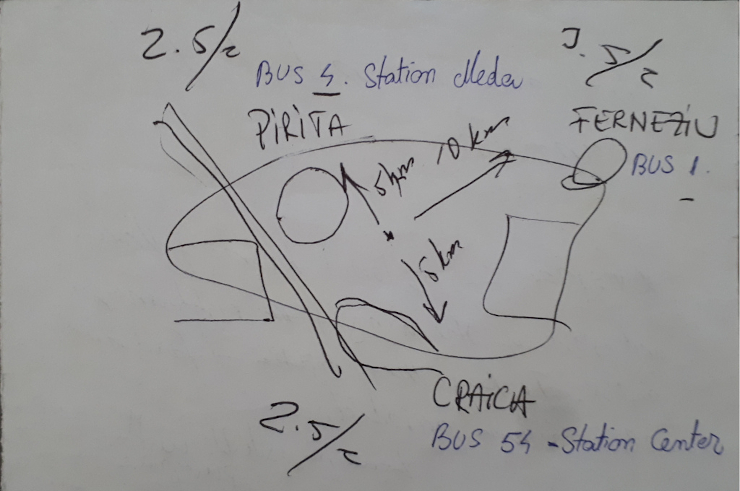 2.5/2
BUS 4. Station Meda
PIRITA
5/2
FERNEZIU
BUS 1.
5km
10 km
5km
CRAICA
BUS 54 - Station Center
2.5/2